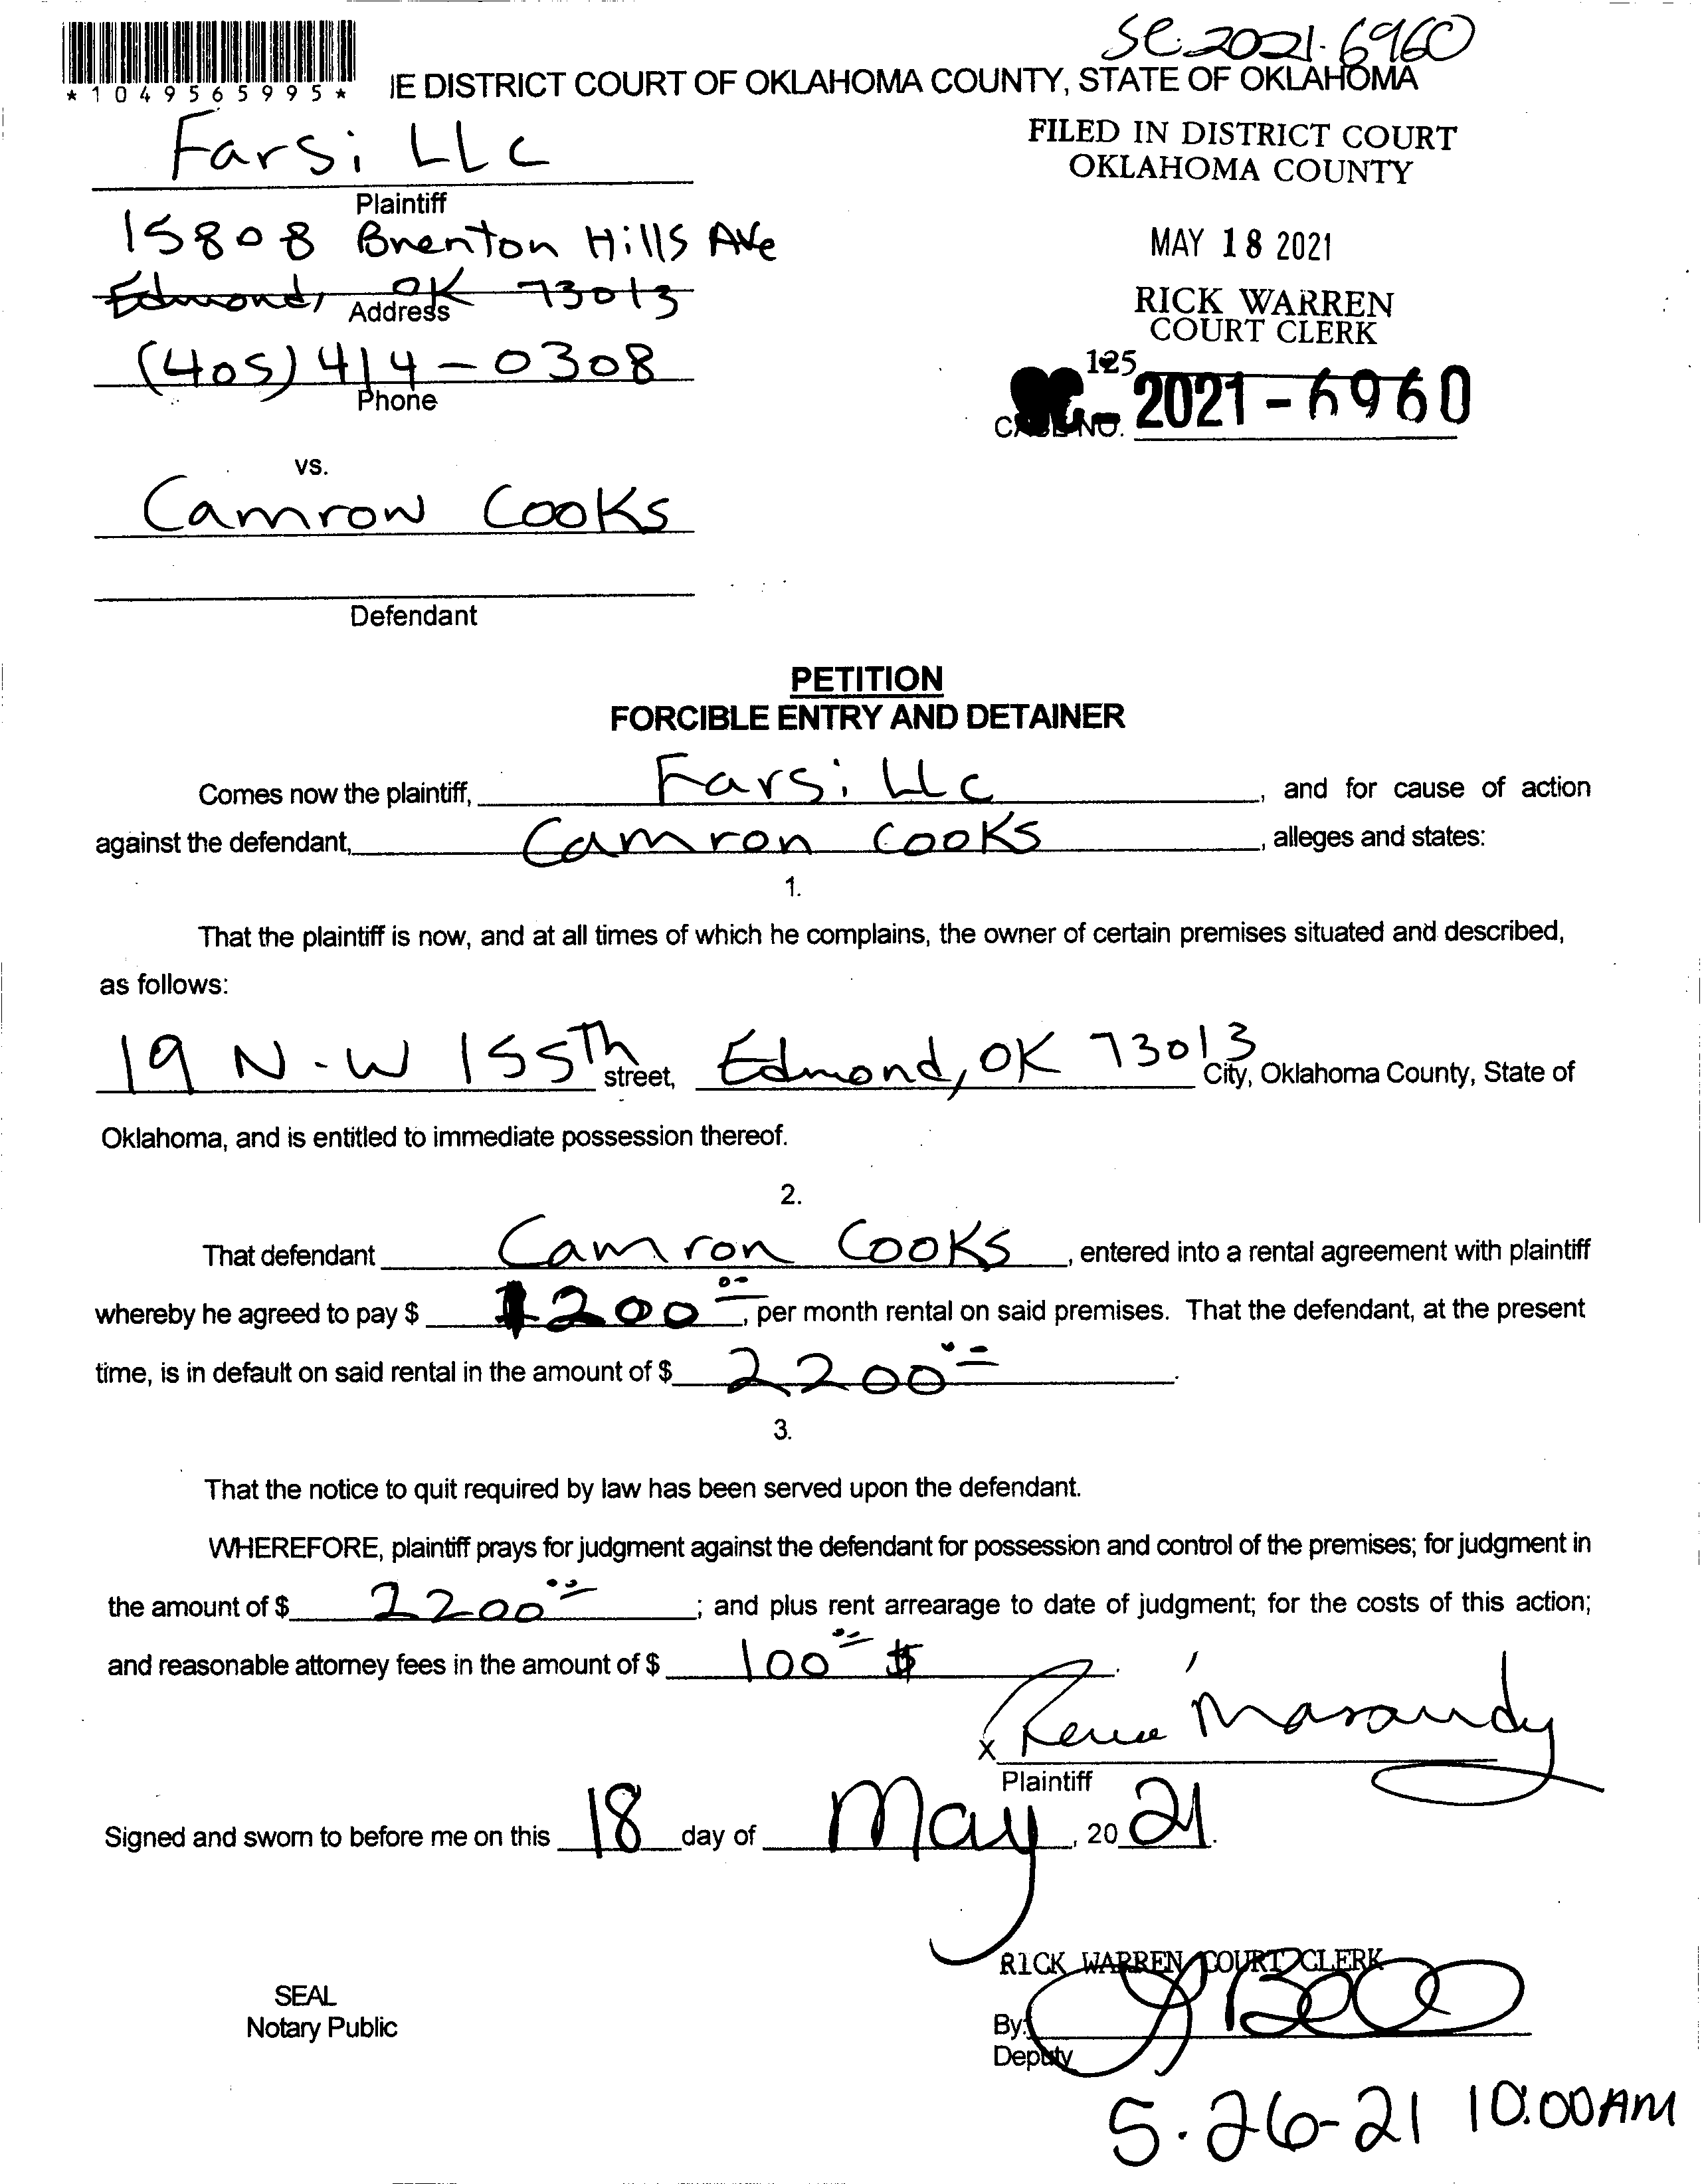 SC-2021-6960
*1049565995*
IE DISTRICT COURT OF OKLAHOMA COUNTY, STATE OF OKLAHOMA
Farsi LLC
Plaintiff
15808 Brenton Hills Ave
Edmond, OK 73013
Address
(405) 414-0308
Phone
FILED IN DISTRICT COURT
OKLAHOMA COUNTY
MAY 18 2021
RICK WARREN
COURT CLERK
125
CASE NO. 2021-6960
vs.
Camron Cooks
Defendant
PETITION
FORCIBLE ENTRY AND DETAINER
Comes now the plaintiff, Farsi LLC, and for cause of action
against the defendant, Camron Cooks, alleges and states:
1.
That the plaintiff is now, and at all times of which he complains, the owner of certain premises situated and described,
as follows:
19 N.W 155th street, Edmond, OK 73013 City, Oklahoma County, State of
Oklahoma, and is entitled to immediate possession thereof.
2.
That defendant Camron Cooks, entered into a rental agreement with plaintiff
whereby he agreed to pay $ 1200 00, per month rental on said premises. That the defendant, at the present
time, is in default on said rental in the amount of $ 2200 00.
3.
That the notice to quit required by law has been served upon the defendant.
WHEREFORE, plaintiff prays for judgment against the defendant for possession and control of the premises; for judgment in
the amount of $ 2200 00; and plus rent arrearage to date of judgment; for the costs of this action;
and reasonable attorney fees in the amount of $ 100 00 $.
x
Plaintiff
Signed and sworn to before me on this 18 day of May, 20 21.
RICK WARREN COURT CLERK
SEAL
Notary Public
By:
Deputy
5-26-21 10:00AM